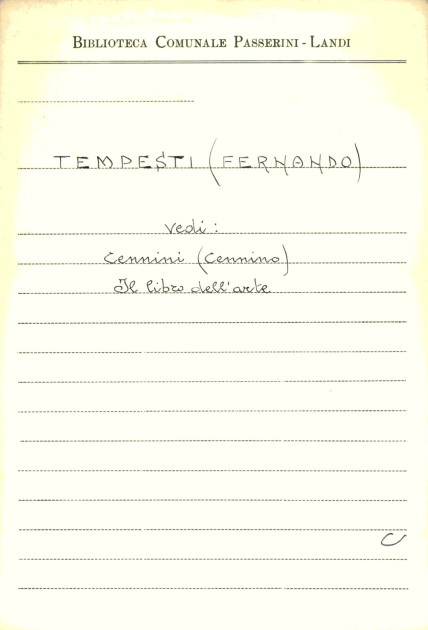 BIBLIOTECA COMUNALE PASSERINI - LANDI
TEMPESTI (FERNANDO)
vedi:
Cennini (Cennino)
Il libro dell'arte
C